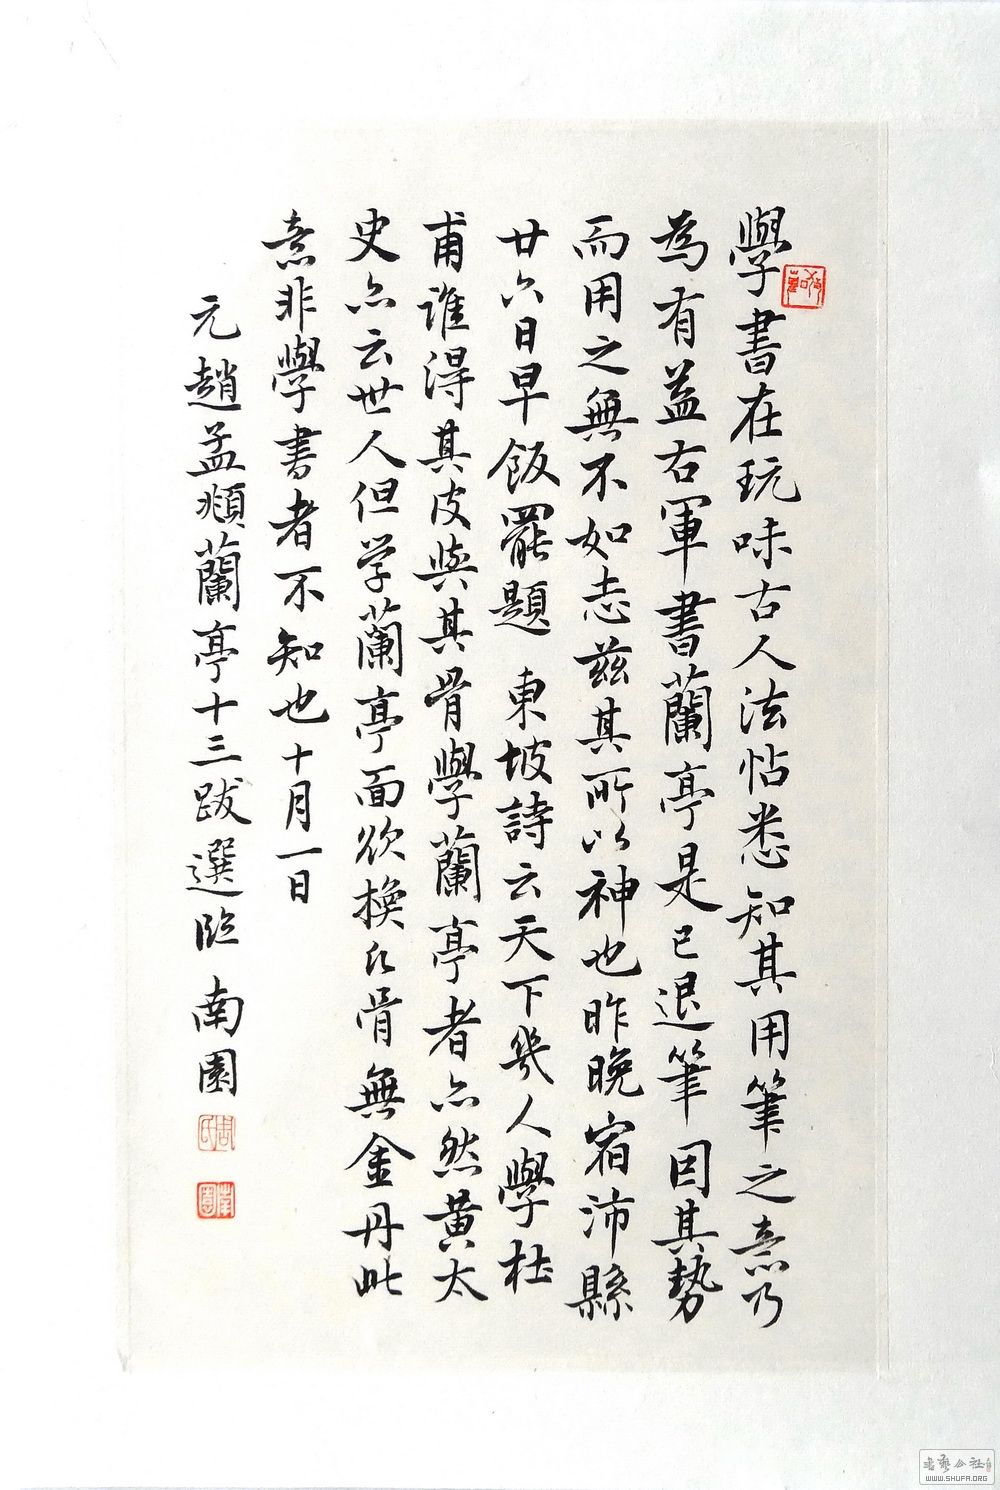 學書在玩味古人法帖悉知其用筆之意乃
為有益右軍書蘭亭是已退筆因其勢
而用之無不如志茲其所以神也昨晚宿沛縣
廿六日早飯罷題 東坡詩云天下幾人學杜
甫誰得其皮與其骨學蘭亭者亦然黃太
史亦云世人但学蘭亭面欲換凡骨無金丹此
意非學書者不知也十月一日
元趙孟頫蘭亭十三跋選臨 南園
周氏
南園
書藝公社
WWW.SHUFA.ORG